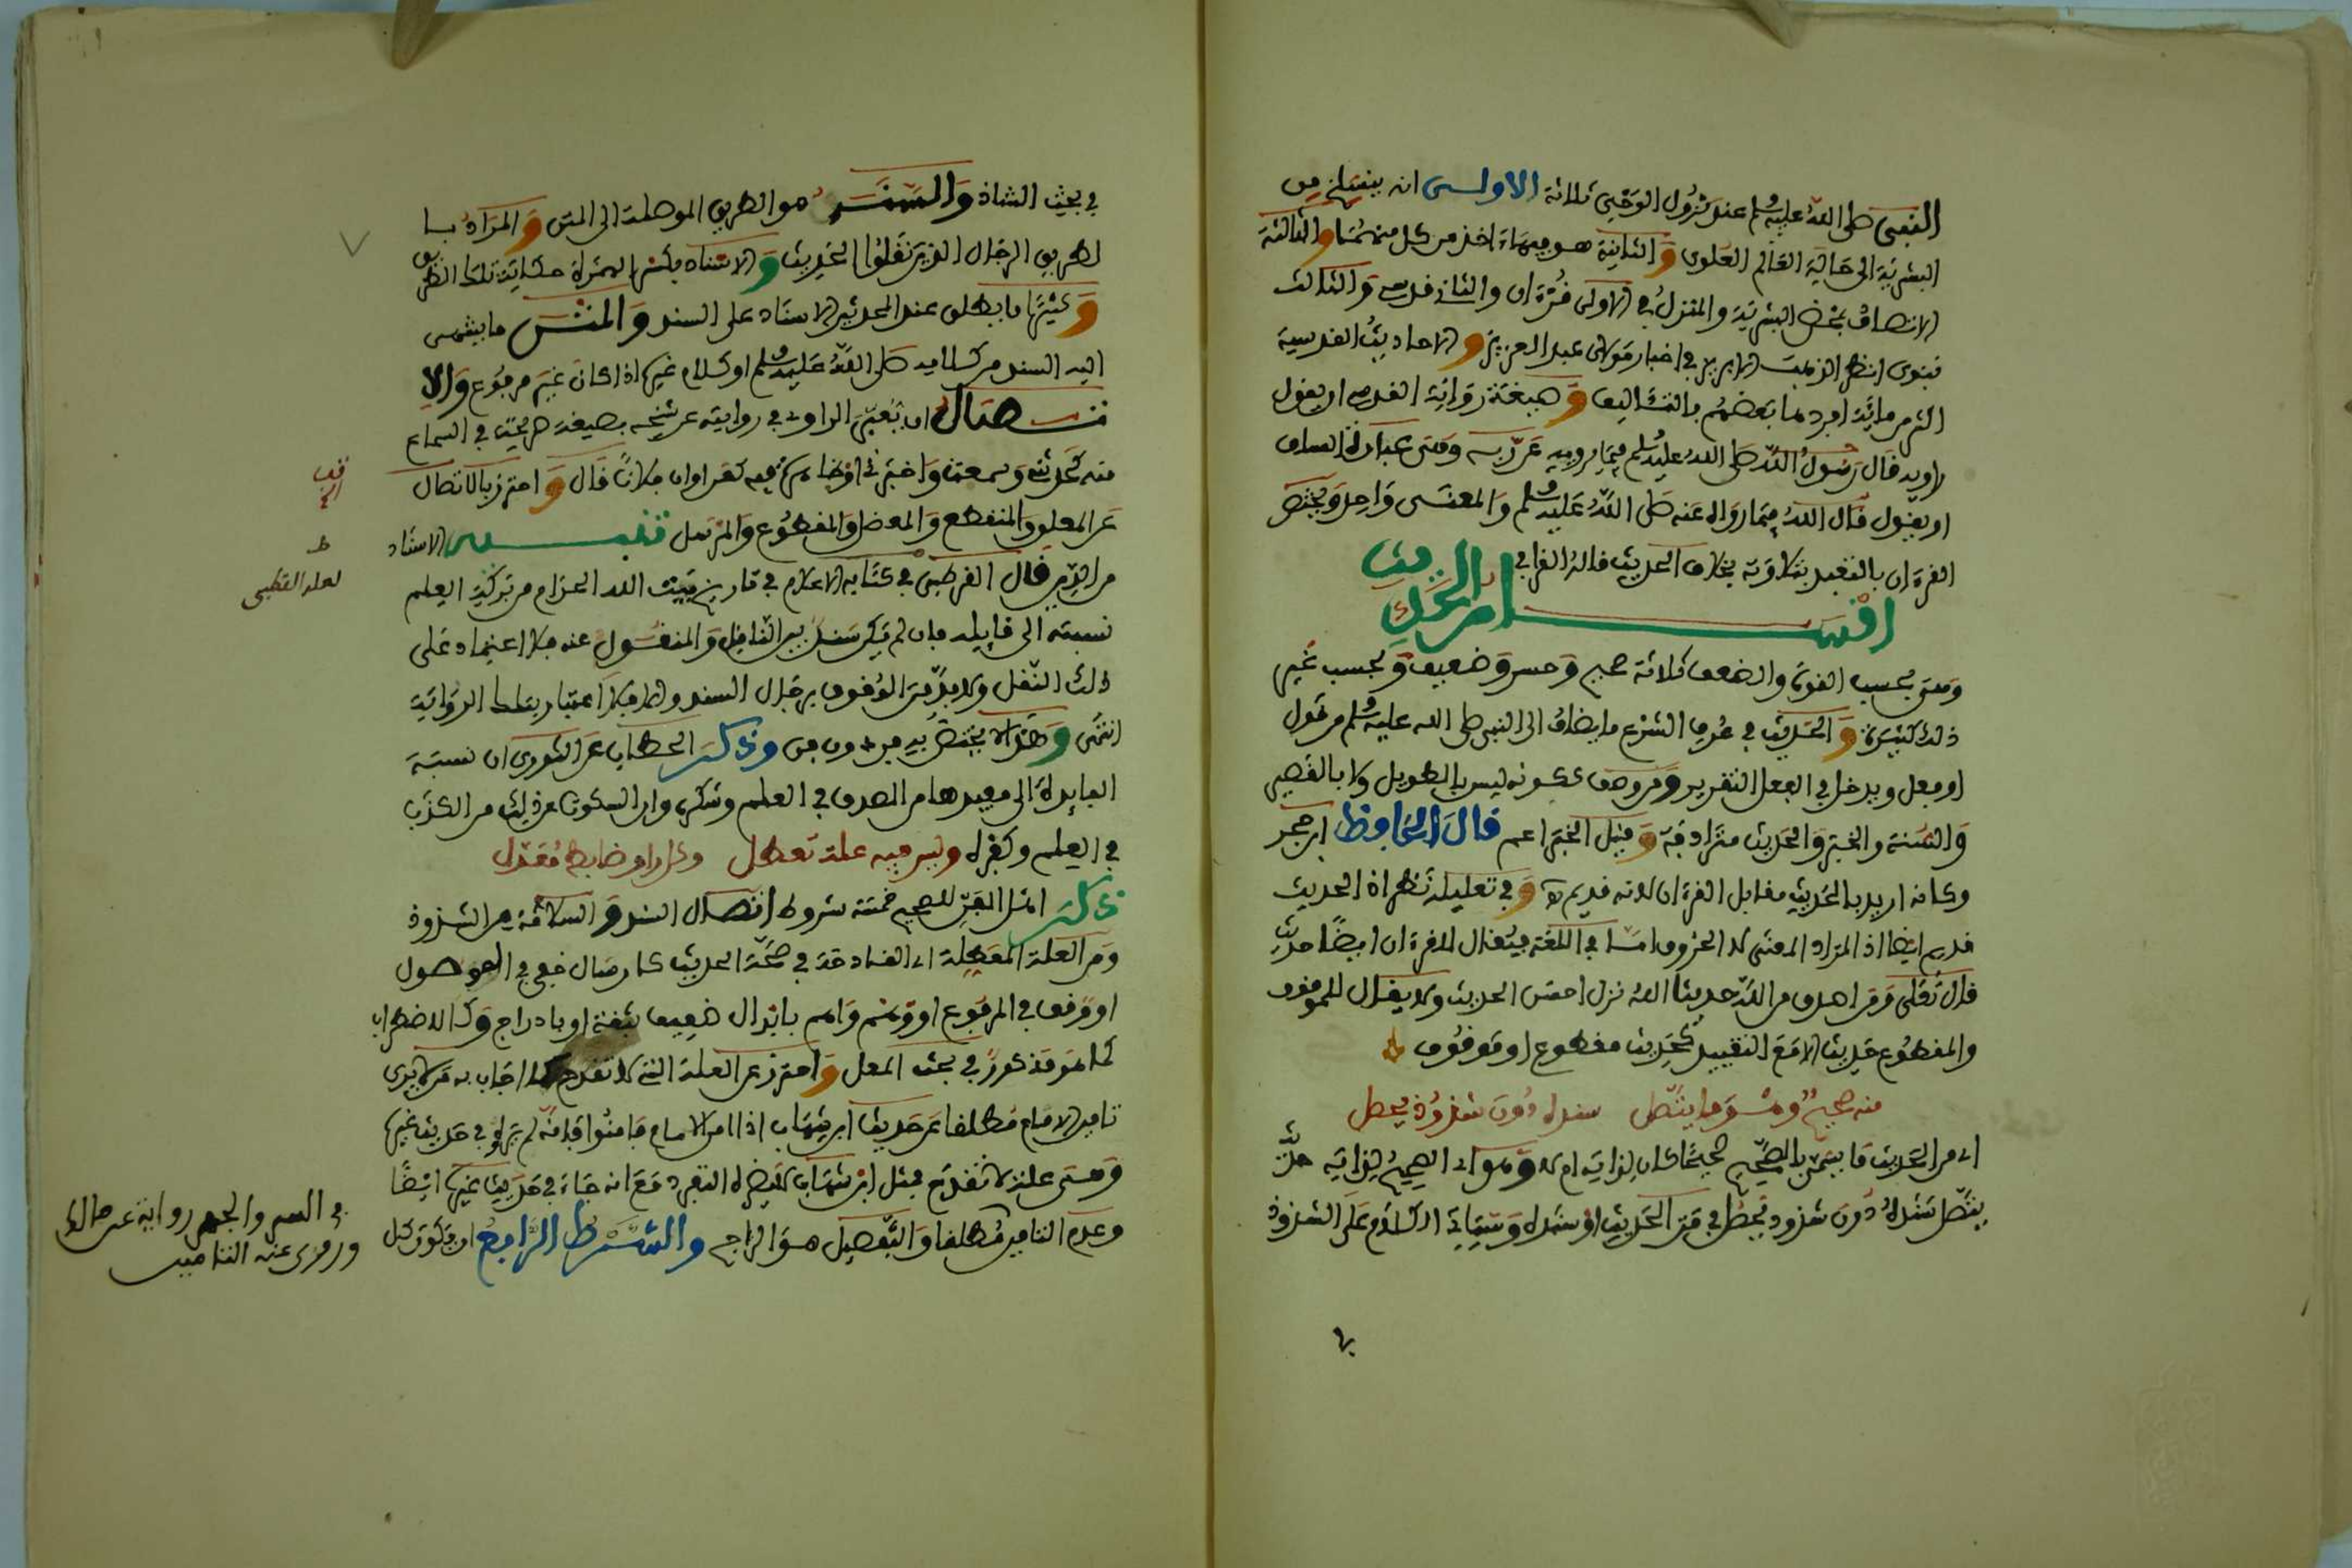 النبي صلى الله عليه وسلم عند نزول الوحي ثلاثة الاولى ان ينسلخ من
البشرية الى حالة العالم العلوي والثانية هو فيهما اخذ من كل منهما والثالثة
الاتصاف بمحض البشرية والمنزل في الاولى قرءان والثاني قدسي والثالث
نبوي انظر الذهب الابريز في اخبار مولاي عبد العزيز والاحاديث القدسية
اكثر من مائة افردها بعضهم بالتاليف وصيغة رواية القدسي ان يقول
راويه قال رسول الله صلى الله عليه وسلم فيما يرويه عن ربه وهي عبارة السلف
او يقول قال الله فيما رواه عنه صلى الله عليه وسلم والمعنى واحد ويختص
القرءان بالتعبد بتلاوته بخلاف الحديث قاله القرافي
اقسام الحديث
وهي بحسب القوة والضعف ثلاثة صحيح وحسن وضعيف وبحسب غير
ذلك كثيرة والحديث في عرف الشرع ما يضاف الى النبي صلى الله عليه وسلم من قول
او فعل ويدخل في الفعل التقرير ومن وصف ككونه ليس بالطويل ولا بالقصير
والسنة والخبر والحديث مترادفة وقيل الخبر اعم قال الحافظ ابن حجر
وكانه اريد بالحديث مقابل القرءان لانه قديم وفي تعليله نظر اذ الحديث
قديم ايضا اذ المراد المعنى لا الحروف اما في اللغة فيقال للقرءان ايضا حديث
قال تعلى ومن اصدق من الله حديثا الله نزل احسن الحديث ولا يقال للموقوف
والمقطوع حديث الا مع التقييد كحديث مقطوع او موقوف
منه صحيح وهو ما يتصل سنده دون شذوذ يحصل
اي من الحديث ما يسمى بالصحيح حجة كان لذاته ام لا وهو اي الصحيح لذاته حديث
يتصل سنده دون شذوذ يحصل في متن الحديث او سنده وسياتي الكلام على الشذوذ
في بحث الشاذ والسند هو الطريق الموصلة الى المتن والمراد بـا
لطريق الرجال الذين نقلوا الحديث والاسناد بكسر الهمزة حكاية تلك الطريق
وكثيرا ما يطلق عند المحدثين الاسناد على السند والمتن ما ينتهي
اليه السند من كلامه صلى الله عليه وسلم او كلام غيره اذا كان غير مرفوع والا
تصال ان يعبر الراوي في روايته عن شيخه بصيغة صريحة في السماع
منه كحدثني وسمعت واخبرني او ظاهرة فيه كعن او ان فلانا قال واحترز بالاتصال
عن المعلق والمنقطع والمعضل والمقطوع والمرسل تنبيه الاسناد
من الدين قال القرطبي في كتابه الاعلام في تاريخ بيت الله الحرام من بركة العلم
لعله القطبي
نسبته الى قايله فان لم يكن سند بين الناقل والمنقول عنه فلا اعتماد على
ذلك النقل ولا بد من الوقوف برجال السند والا فلا اعتبار بتلك الرواية
انتهى وهذا لا يختص به فن دون فن وذكر الحطاب عن النووي ان نسبة
الفايدة الى مفيدها من الصدق في العلم وشكره وان السكوت عن ذلك من الكذب
في العلم وكفره وليس فيه علة تعطل وكل راو ضابط معدل
ذكر اهل الفن للصحيح خمسة شروط اتصال السند والسلامة من الشذوذ
ومن العلة المعطلة اي القادحة في صحة الحديث كارسال خفي في الموصول
او وقف في المرفوع او وهم واهم بابدال ضعيف بثقة او بادراج وكالاضطراب
كما هو مذكور في بحث المعل واحترز عن العلة التي لا تقدح كما اجاب به من لا يرى
تامين الامام مطلقا عن حديث ابن شهاب اذا امن الامام فامنوا فانه لم يره في حديث غيره
وهي علة لا تقدح فمثل ابن شهاب لا يضره التفرد مع انه جاء في حديث غيره ايضا
وعدم التامين مطلقا والتفصيل هو الراجح والشرط الرابع ان يكون كل
في السر والجهر رواية عن مالك
وروى عنه التامين